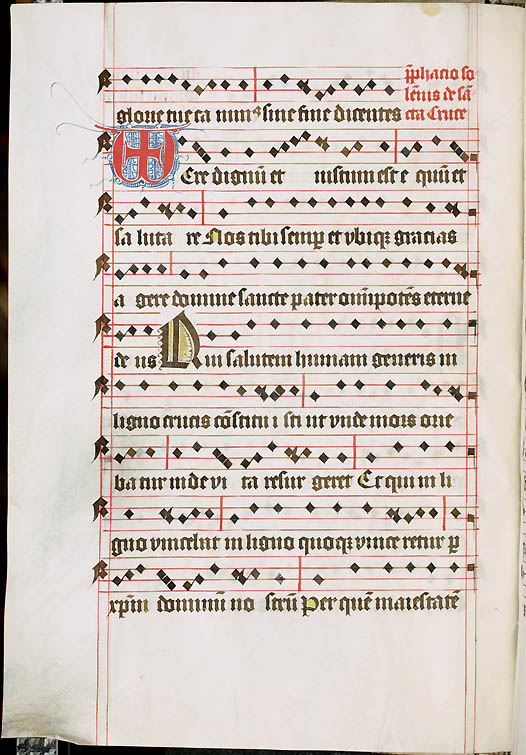 p̄phacio so
lēnis de sā
cta Cruce
glorie tue ca nimꝰ sine fine dicentes
Ere dignū et iustum est e quū et
sa luta re Nos tibi semꝑ et vbiqꝫ gracias
a gere domine sancte pater om̄ipotēs eterne
de us Qui salutem humani generis in
ligno crucis cōstitu i sti ut vnde mors orie
ba tur inde vi ta resur geret Et qui in li
gno vincebat in ligno quoqꝫ vince retur ꝑ
xp̄m dominū no strū Per quē maiestatē